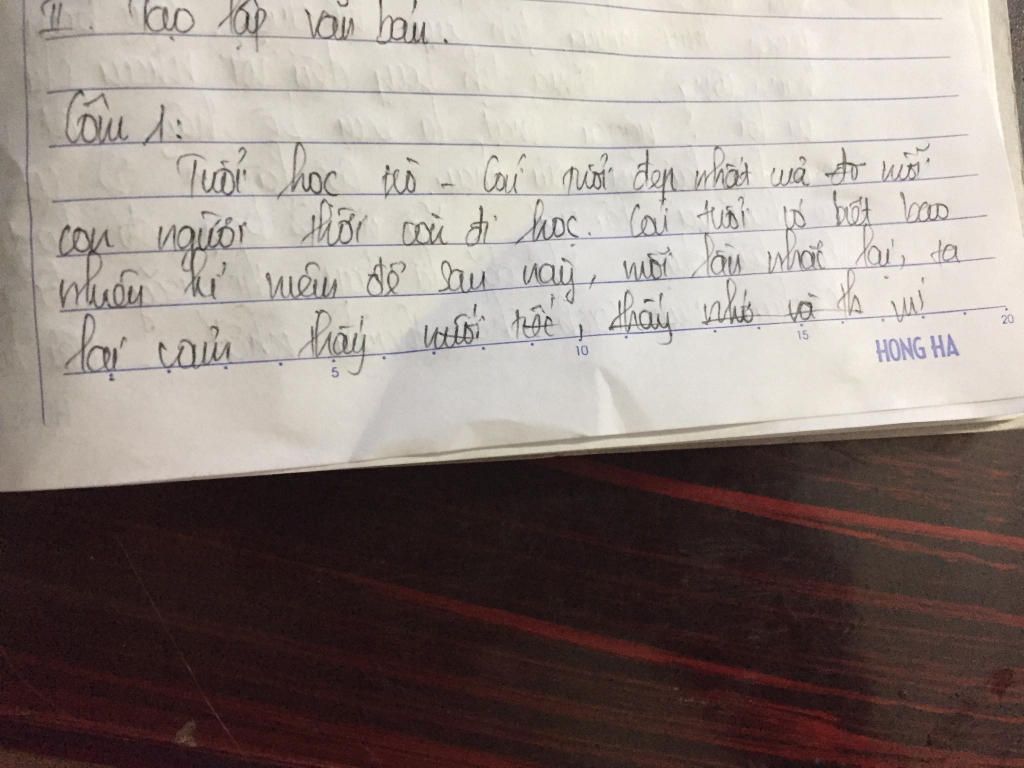 II. Tạo lập văn bản.
Câu 1:
Tuổi học trò - Cái tuổi đẹp nhất của đời mỗi
con người thời còn đi học. Cái tuổi có biết bao
nhiêu kỉ niệm để sau này, mỗi lần nhắc lại, ta
lại cảm thấy nuối tiếc, thấy nhớ và
5 10 15 20
HONG HA